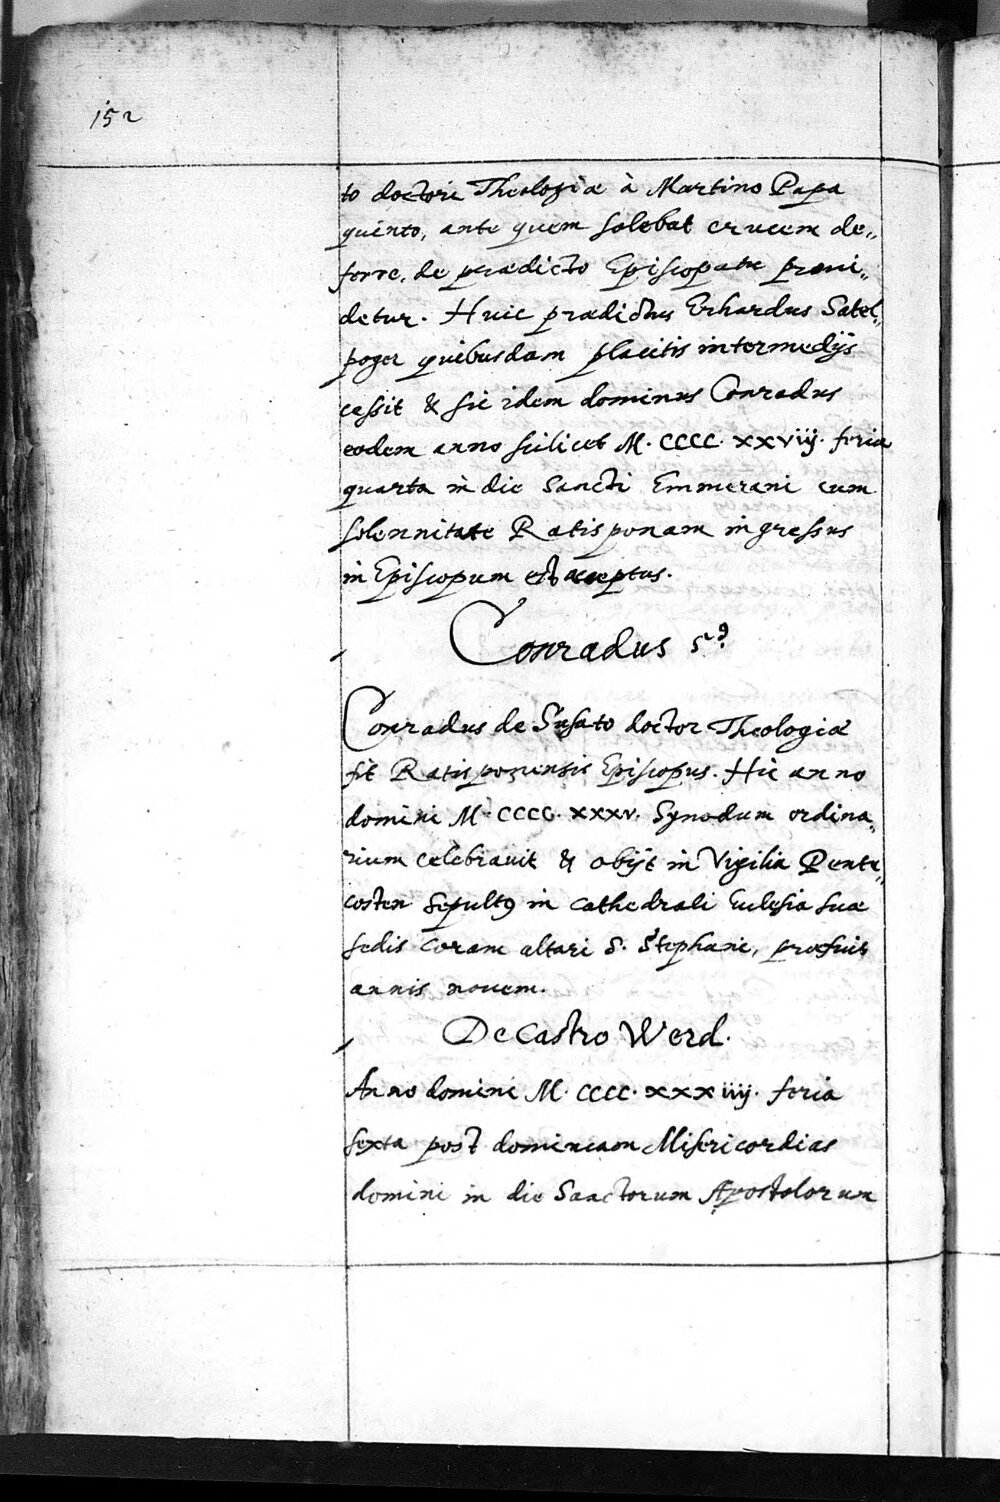 152
to doctori Theologiæ à Martino Papa
quinto, ante quem solebat crucem de„
ferre, de prædicto Episcopatu proui„
detur. Huic prædictus Erhardus Satel„
poger quibusdam placitis intermedijs
cessit & sic idem dominus Conradus
eodem anno scilicet M. CCCC. XXVIIJ. feria
quarta in die Sancti Emmerani cum
solennitate Ratisponam ingressus
in Episcopum est acceptus.
Conradus 5⁹.
Conradus de Susato doctor Theologiæ
fit Ratisponensis Episcopus. Hic anno
domini M. CCCC. XXXV. Synodum ordina„
rium celebrauit & obijt in Vigilia Pente„
costen sepultꝰ in cathedrali Eclesia suæ
sedis coram altari S. Stephani, præfuit
annis nouem.
De Castro Werd.
Anno domini M. CCCC. XXXIIIJ. feria
sexta post dominicam Misericordias
domini in die Sanctorum Apostolorum